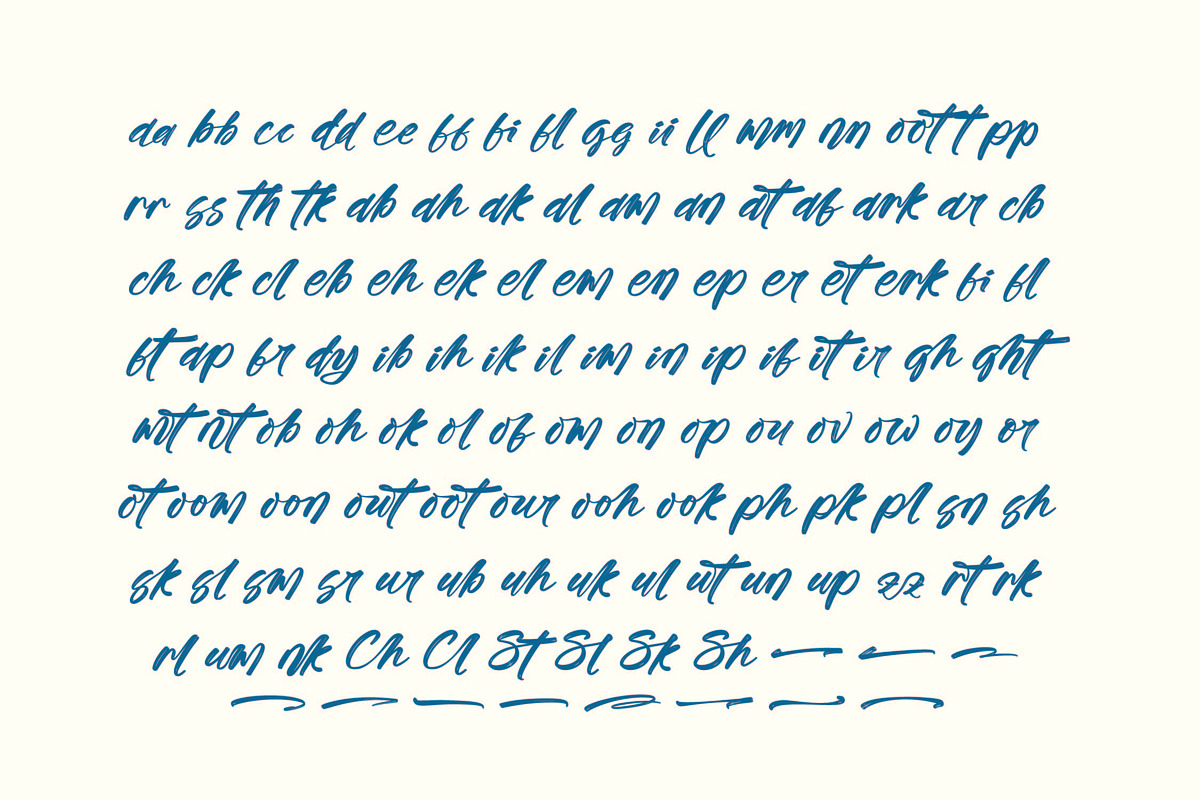 aa bb cc dd ee ff fi fl gg ii ll mm nn oo tt pp
rr ss th tk ab ah ak al am an at af ark ar cb
ch ck cl eb eh ek el em en ep er et erk fi fl
ft ap fr dy ib ih ik il im in ip if it ir gh ght
mt nt ob oh ok ol of om on op ou ov ow oy or
ot oom oon out oot our ooh ook ph pk pl sn sh
sk sl sm sr ur ub uh uk ul ut un up zz rt rk
rl um nk Ch Cl St Sl Sk Sh